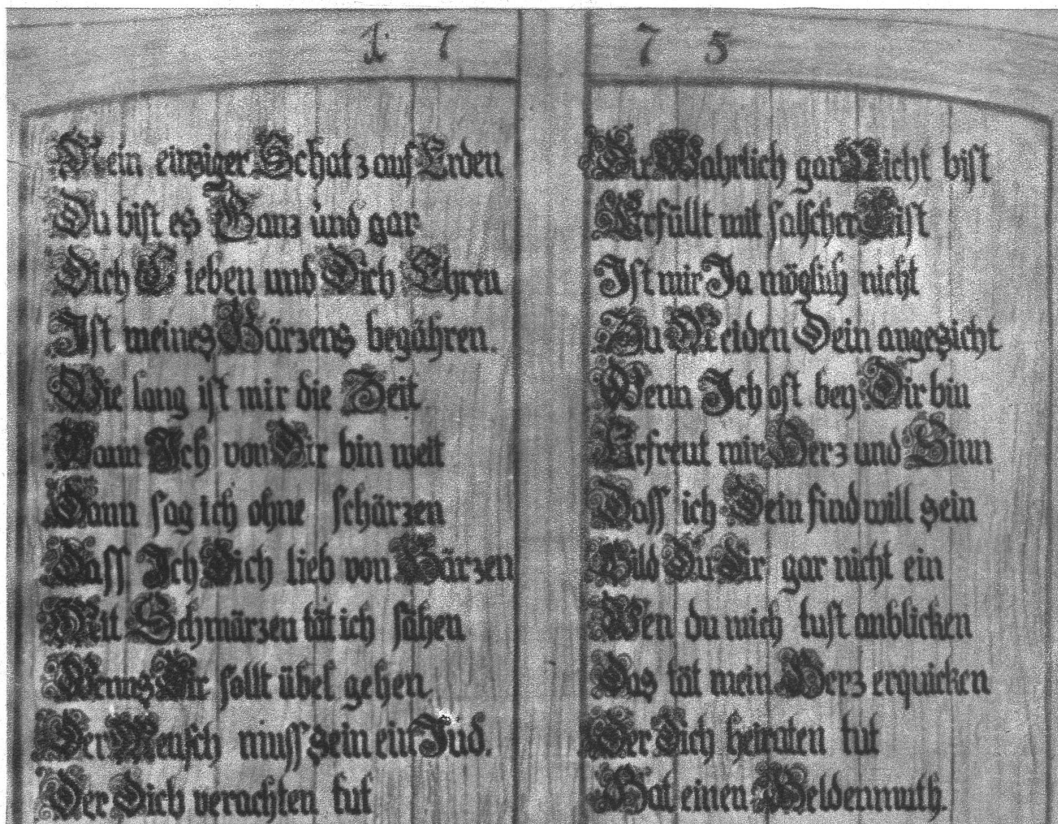 17 75
Mein einziger Schatz auf Erden
Du bist es Ganz und gar
Dich Lieben und Dich Ehren
Ist meines Härzens begähren.
Wie lang ist mir die Zeit
Wann Ich von Dir bin weit
Dann sag ich ohne schärzen
Dass Ich Dich lieb von Härzen
Mit Schmärzen tät ich sähen
Wenns Dir sollt übel gehen
Der Mensch muss sein ein Jud.
Der Dich verachten tut
Du Wahrlich gar Nicht bist
Erfüllt mit falscher List
Ist mir Ja möglich nicht
Zu Meiden Dein angesicht
Wenn Ich oft bey Dir bin
Erfreut mir Herz und Sinn
Dass ich Dein find will sein
Bild Du Dir gar nicht ein
Wen du mich tust anblicken
Das tät mein Herz erquicken
Der Dich heiraten tut
Hat einen Heldenmuth.